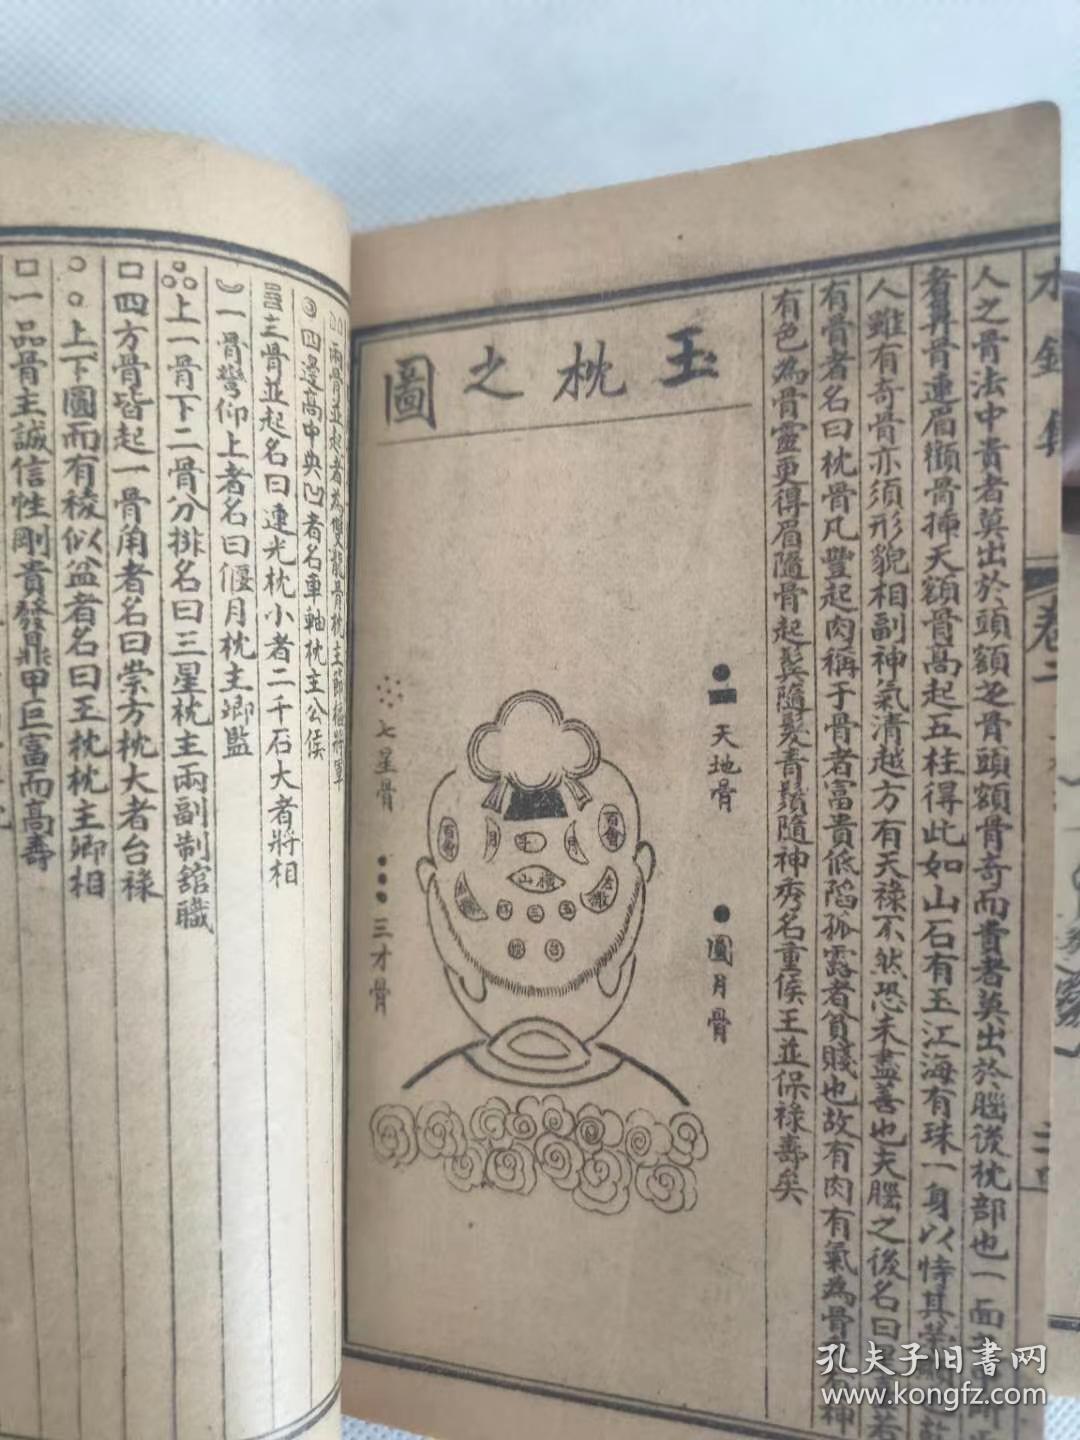 水鏡集
卷二
人之骨法中貴者莫出於頭額之骨頭額骨奇而貴者莫出於腦後枕部也一面
骨連眉顴骨揷天額骨高起五柱得此如山石有玉江海有珠一身以恃其
人雖有奇骨亦須形貌相副神氣清越方有天祿不然恐未盡善也夫腦之後名曰
有骨者名曰枕骨凡豐起肉稱于骨者富貴低陷孤露者貧賤也故有肉有氣為骨
有色為骨靈更得眉隨骨起鬂隨髮青鬚隨神秀名重侯王並保祿壽矣
玉枕之圖
天地骨
圓月骨
七星骨
三才骨
百會
月
山
三
百會
兩骨並起者為雙龍骨枕主節樞將軍
四邊高中央凹者名車軸枕主公侯
三骨並起名曰連光枕小者二千石大者將相
一骨彎仰上者名曰偃月枕主卿監
上一骨下二骨分排名曰三星枕主兩副制舘職
四方骨皆起一骨角者名曰崇方枕大者台祿
上下圓而有稜似盆者名曰玉枕枕主卿相
一品骨主誠信性剛貴發鼎甲巨富而高壽
孔夫子旧書网
www.kongfz.com